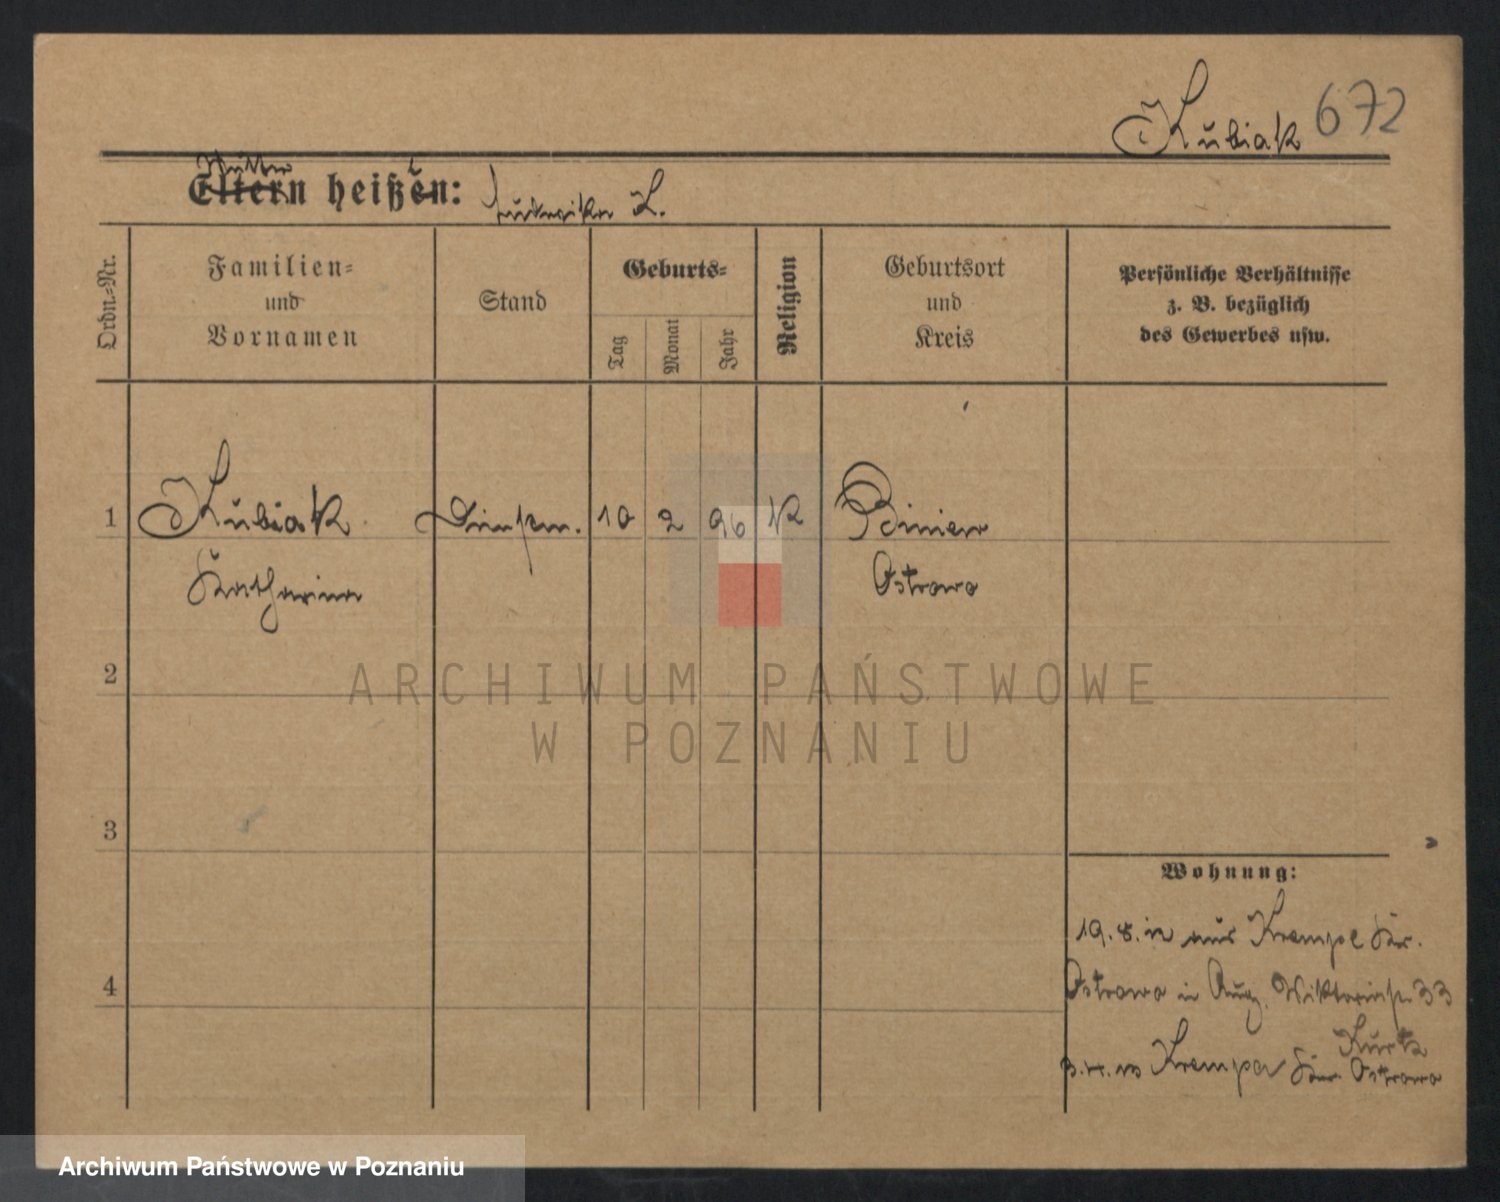 Kubiak 672
Mutter
Eltern heißen: Ludwika K.
Ordn.-Nr.
Familien-
und
Vornamen
Stand
Geburts-
Tag
Monat
Jahr
Religion
Geburtsort
und
Kreis
Persönliche Verhältnisse
z. B. bezüglich
des Gewerbes usw.
1 Kubiak 10 2 96 K Biniew
Katharina Ostrowo
2
3
4
Wohnung:
19. 8. 12 aus Krempe Kr.
Ostrowo in Aug. Viktoriastr. 33
Kurtz
3. 4. 13 Krempa Kr. Ostrowo
ARCHIWUM PAŃSTWOWE
W POZNANIU
Archiwum Państwowe w Poznaniu